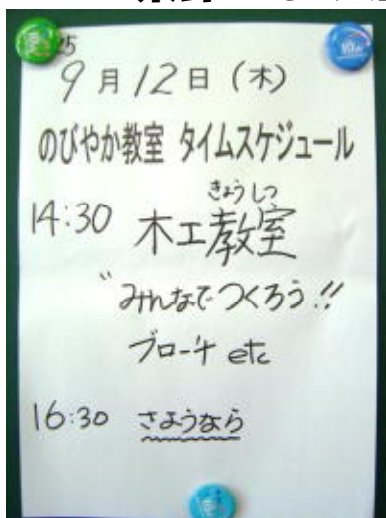 25
9月12日(木)
のびやか教室 タイムスケジュール
きょうしつ
14:30 木工教室
"みんなでつくろう!!
ブローチ etc
16:30 さようなら